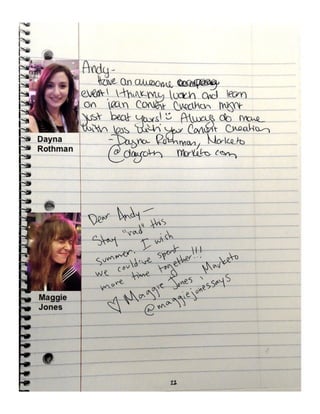 Andy-
Have an awesome
event! I think my lunch and learn
on lean content creation might
just beat yours! Always do more
with less with your content creation
-Dayna Rothman, Marketo
@dayroth marketo.com
Dayna
Rothman
Dear Andy-
Stay "rad" this
summer. I wish
we could've spent
more time together!!!
♡ Maggie Jones, Marketo
@maggiejonessays
Maggie
Jones
22